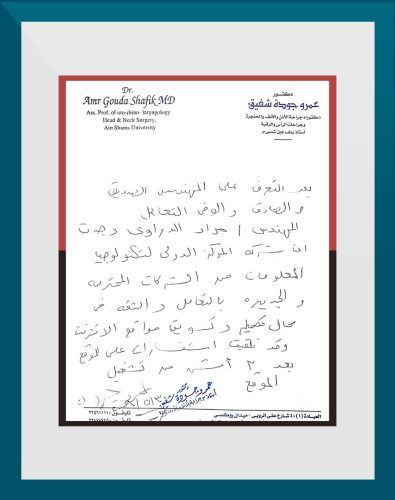 Dr.
Amr Gouda Shafik MD
Ass. Prof. of oto-rhino- laryngology
Head & Neck Surgery,
Ain Shams University
دكتور
عمرو جودة شفيق
دكتوراه جراحة الأذن والأنف والحنجرة
وجراحات الرأس والرقبة
أستاذ بطب عين شمس م.
بعد التعرف على المهندس الصديق
والصادق والوفى التعامل
المهندس / مراد الدراوى وجدت
ان شركه المركز الدولى لتكنولوجيا
المعلومات من الشركات المحترمه
و الجديره بالتعامل والثقه فى
مجال تصميم و تسويق مواقع الانترنت
وقد تلقيت استفسارات على الموقع
بعد ٣ أشهر من تشغيل
الموقع
دكتور
عمرو جودة شفيق
العيادة (١): ١ شارع على الروبى - ميدان روكسى